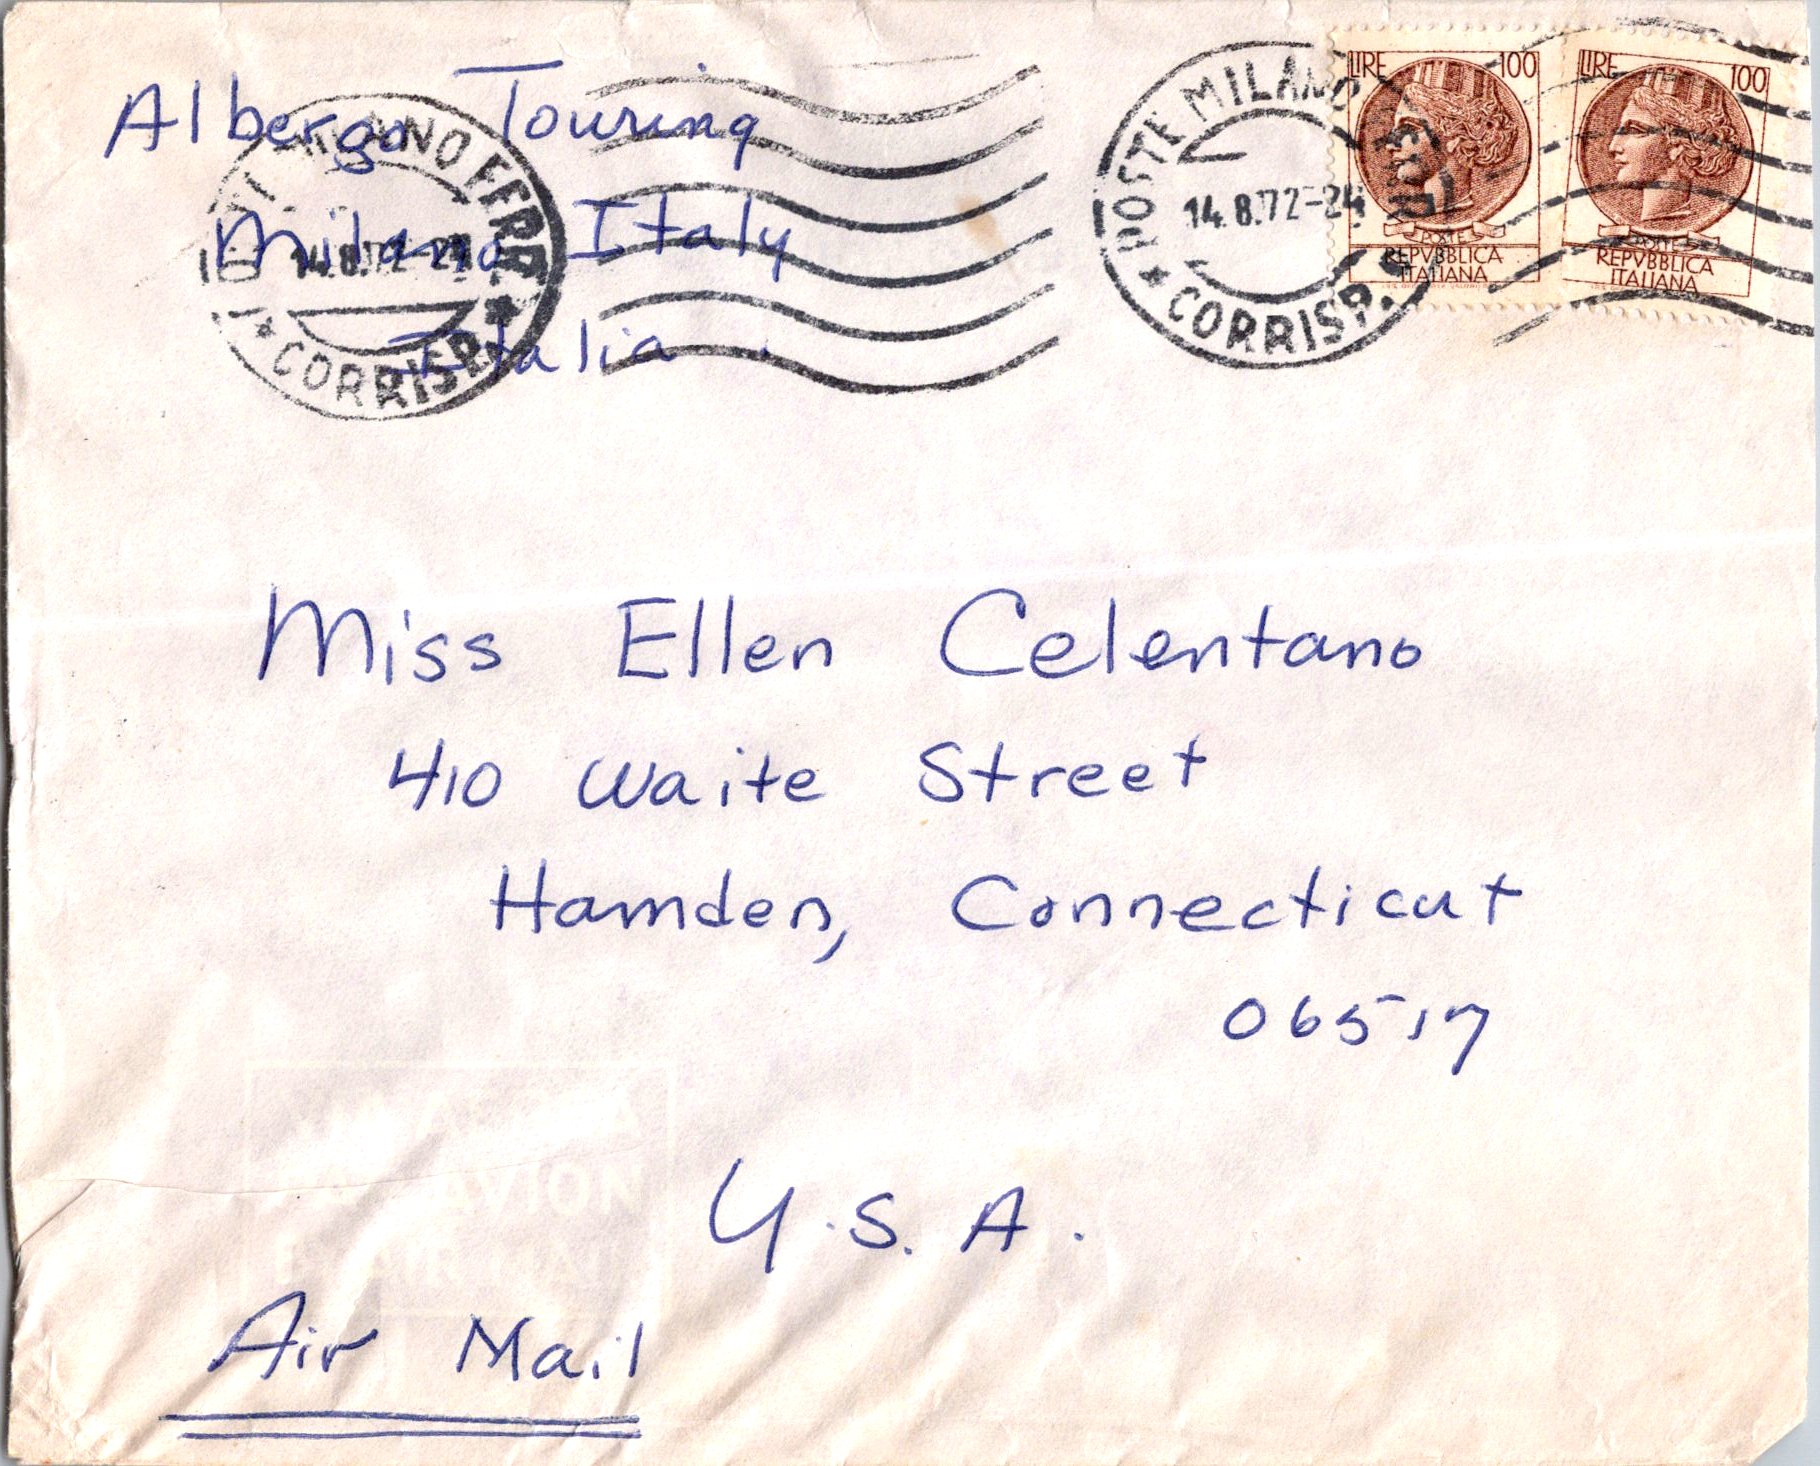 Albergo Touring
Milano Italy
Italia
MILANO FERR.
14.8.72-24
CORRISP.
POSTE MILANO FERR.
14.8.72-24
CORRISP.
LIRE 100
POSTE
REPVBBLICA
ITALIANA
LIRE 100
POSTE
REPVBBLICA
ITALIANA
Miss Ellen Celentano
410 Waite Street
Hamden, Connecticut
06517
U.S.A.
AVION
Air Mail